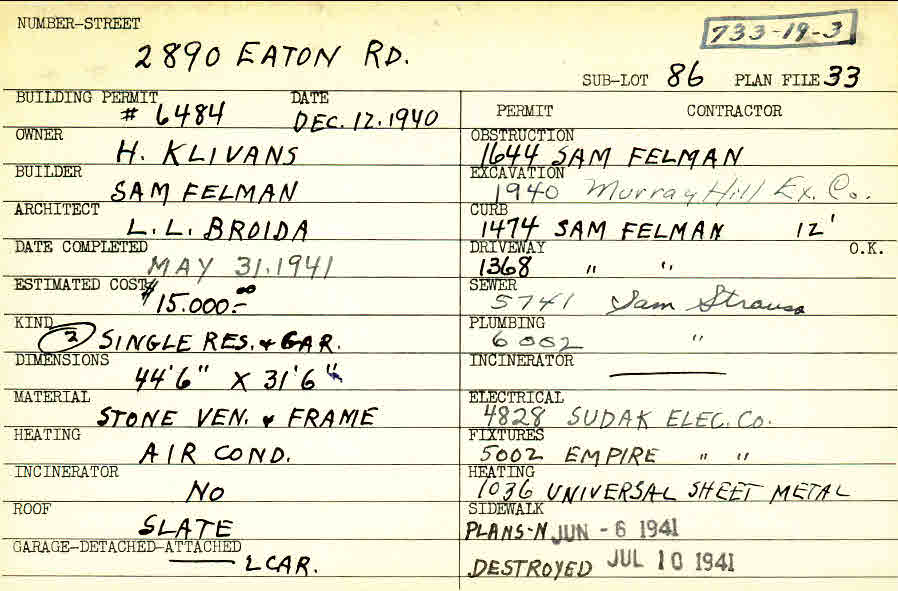 NUMBER-STREET
733-19-3
2890 EATON RD.
SUB-LOT 86 PLAN FILE 33
BUILDING PERMIT # 6484 DATE DEC. 12. 1940
OWNER H. KLIVANS
BUILDER SAM FELMAN
ARCHITECT L. L. BROIDA
DATE COMPLETED MAY 31. 1941
ESTIMATED COST $15.000.00
KIND 2 SINGLE RES. & GAR.
DIMENSIONS 44'6" X 31'6"
MATERIAL STONE VEN. & FRAME
HEATING AIR COND.
INCINERATOR NO
ROOF SLATE
GARAGE-DETACHED-ATTACHED 2 CAR.
PERMIT CONTRACTOR
OBSTRUCTION 1644 SAM FELMAN
EXCAVATION 1940 Murray Hill Ex. Co.
CURB 1474 SAM FELMAN 12'
DRIVEWAY 1368 " " O.K.
SEWER 5741 Sam Strauss
PLUMBING 6002 "
INCINERATOR
ELECTRICAL 4828 SUDAK ELEC. CO.
FIXTURES 5002 EMPIRE " "
HEATING 1036 UNIVERSAL SHEET METAL
SIDEWALK
PLANS-N JUN - 6 1941
DESTROYED JUL 10 1941